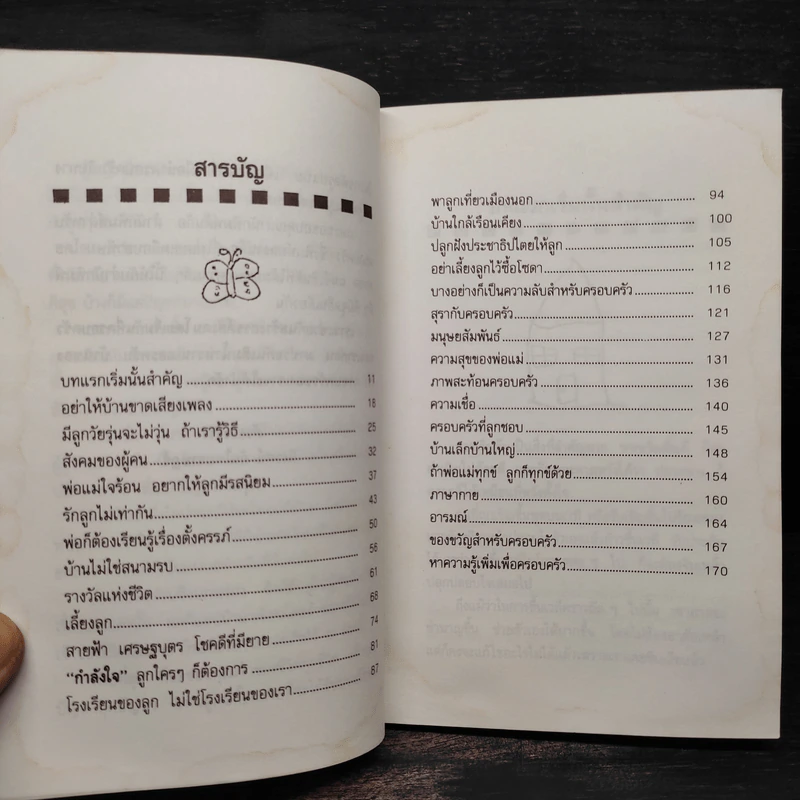 สารบัญ
บทแรกเริ่มนั้นสำคัญ 11
อย่าให้บ้านขาดเสียงเพลง 18
มีลูกวัยรุ่นจะไม่วุ่น ถ้าเรารู้วิธี 25
สังคมของผู้คน 32
พ่อแม่ใจร้อน อยากให้ลูกมีรสนิยม 37
รักลูกไม่เท่ากัน 43
พ่อก็ต้องเรียนรู้เรื่องตั้งครรภ์ 50
บ้านไม่ใช่สนามรบ 56
รางวัลแห่งชีวิต 61
เลี้ยงลูก 68
สายฟ้า เศรษฐบุตร โชคดีที่มียาย 74
"กำลังใจ" ลูกใครๆ ก็ต้องการ 81
โรงเรียนของลูก ไม่ใช่โรงเรียนของเรา 87
พาลูกเที่ยวเมืองนอก 94
บ้านใกล้เรือนเคียง 100
ปลูกฝังประชาธิปไตยให้ลูก 105
อย่าเลี้ยงลูกไว้ซื้อโซดา 112
บางอย่างก็เป็นความลับสำหรับครอบครัว 116
สุรากับครอบครัว 121
มนุษยสัมพันธ์ 127
ความสุขของพ่อแม่ 131
ภาพสะท้อนครอบครัว 136
ความเชื่อ 140
ครอบครัวที่ลูกชอบ 145
บ้านเล็กบ้านใหญ่ 148
ถ้าพ่อแม่ทุกข์ ลูกก็ทุกข์ด้วย 154
ภาษากาย 160
อารมณ์ 164
ของขวัญสำหรับครอบครัว 167
หาความรู้เพิ่มเพื่อครอบครัว 170